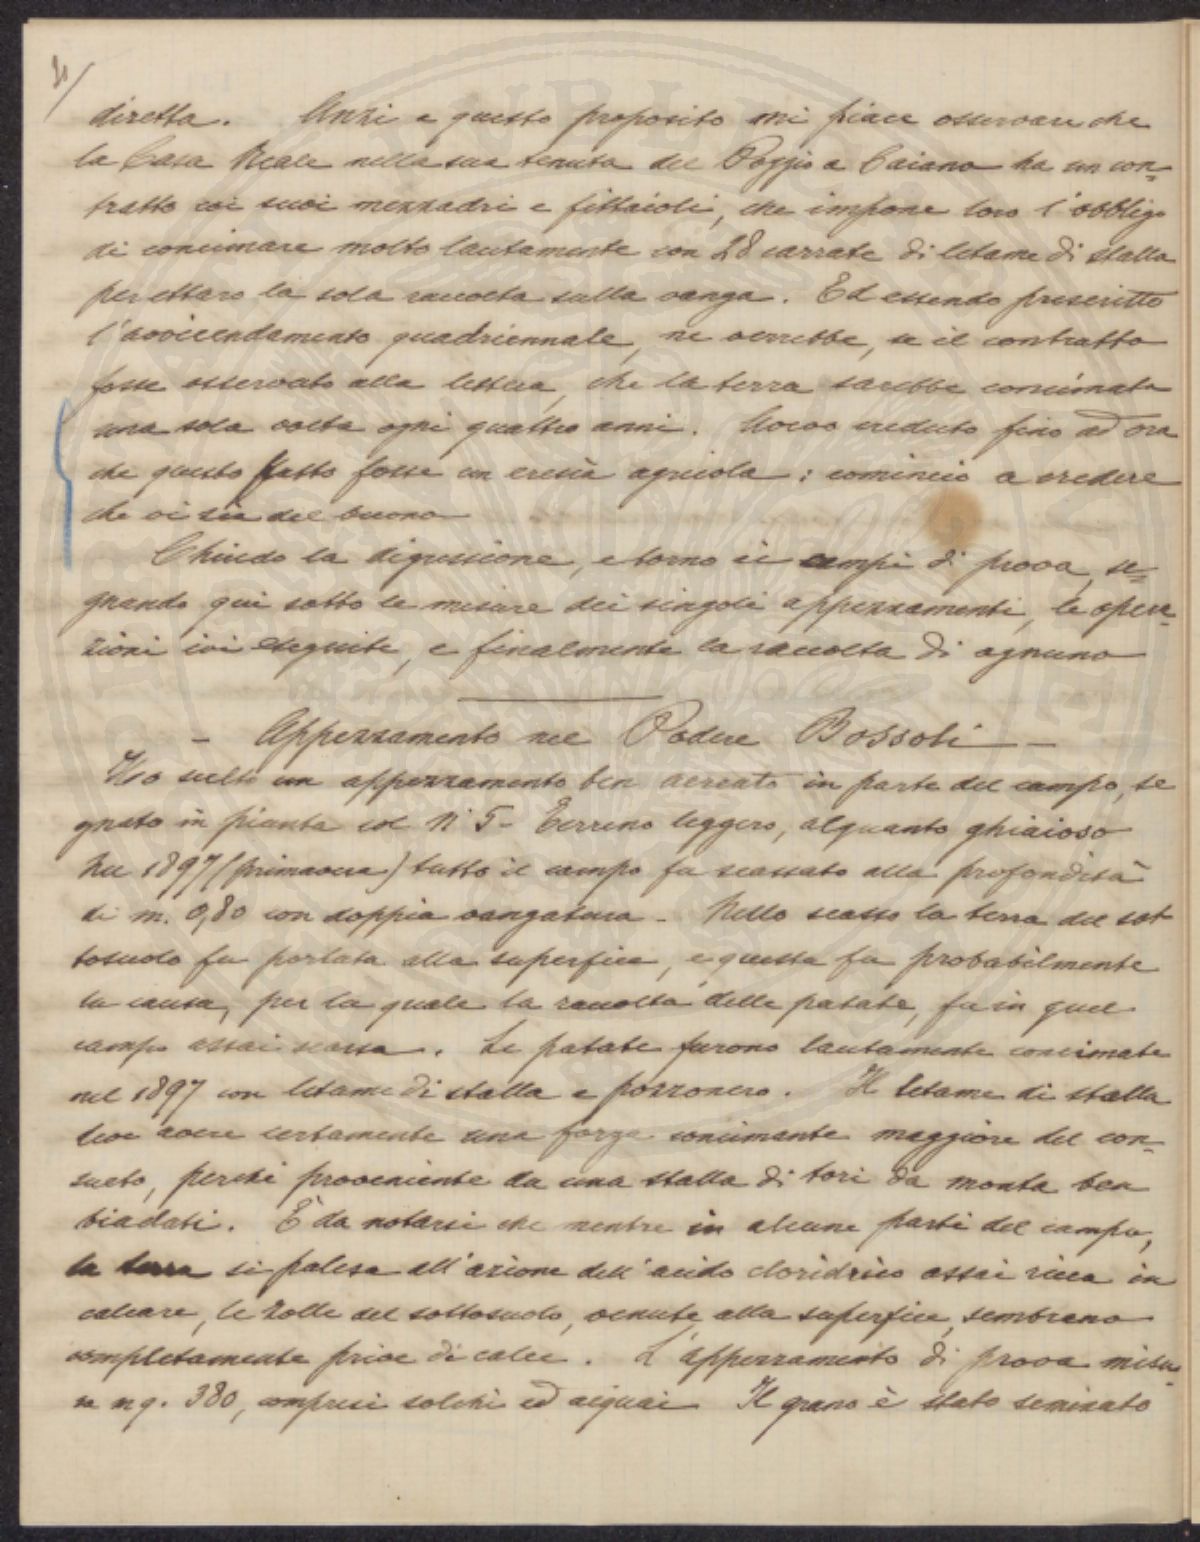 diretta. Anzi a questo proposito mi piace osservare che
la Casa Reale nella sua tenuta del Poggio a Caiano ha un con=
tratto coi suoi mezzadri e fittaioli, che impone loro l'obbligo
di concimare molto lautamente con 28 carrate di letame di stalla
per ettaro la sola raccolta sulla vanga. Ed essendo prescritto
l'avvicendamento quadriennale, ne verrebbe, se il contratto
fosse osservato alla lettera, che la terra sarebbe concimata
una sola volta ogni quattro anni. Avevo creduto fino ad ora
che questo fatto fosse un eresia agricola: comincio a credere
che vi sia del buono
Chiudo la digressione, e torno ai campi di prova, se=
gnando qui sotto le misure dei singoli appezzamenti, le opera=
zioni ivi eseguite, e finalmente la raccolta di ognuno
- Appezzamento nel Podere Bossoli -
Ho scelto un appezzamento ben aereato in parte del campo, se
gnato in pianta col N° 5- Terreno leggero, alquanto ghiaioso
Nel 1897 (primavera) tutto il campo fu scassato alla profondità
di m. 0,80 con doppia vangatura - Nello scasso la terra del sot
tosuolo fu portata alla superfice, e questa fu probabilmente
la causa, per la quale la raccolta delle patate, fu in quel
campo assai scarsa. Le patate furono lautamente concimate
nel 1897 con letame di stalla e pozzonero. Il letame di stalla
deve avere certamente una forza concimante maggiore del con=
sueto, perchè proveniente da una stalla di tori da monta ben
biadati. È da notarsi che mentre in alcune parti del campo,
la terra si palesa all'azione dell'acido cloridrico assai ricca in
calcare, le zolle del sottosuolo, venute alla superfice, sembrano
completamente prive di calce. L'appezzamento di prova misu=
ra mq. 380, compresi solchi ed acquai Il grano è stato seminato